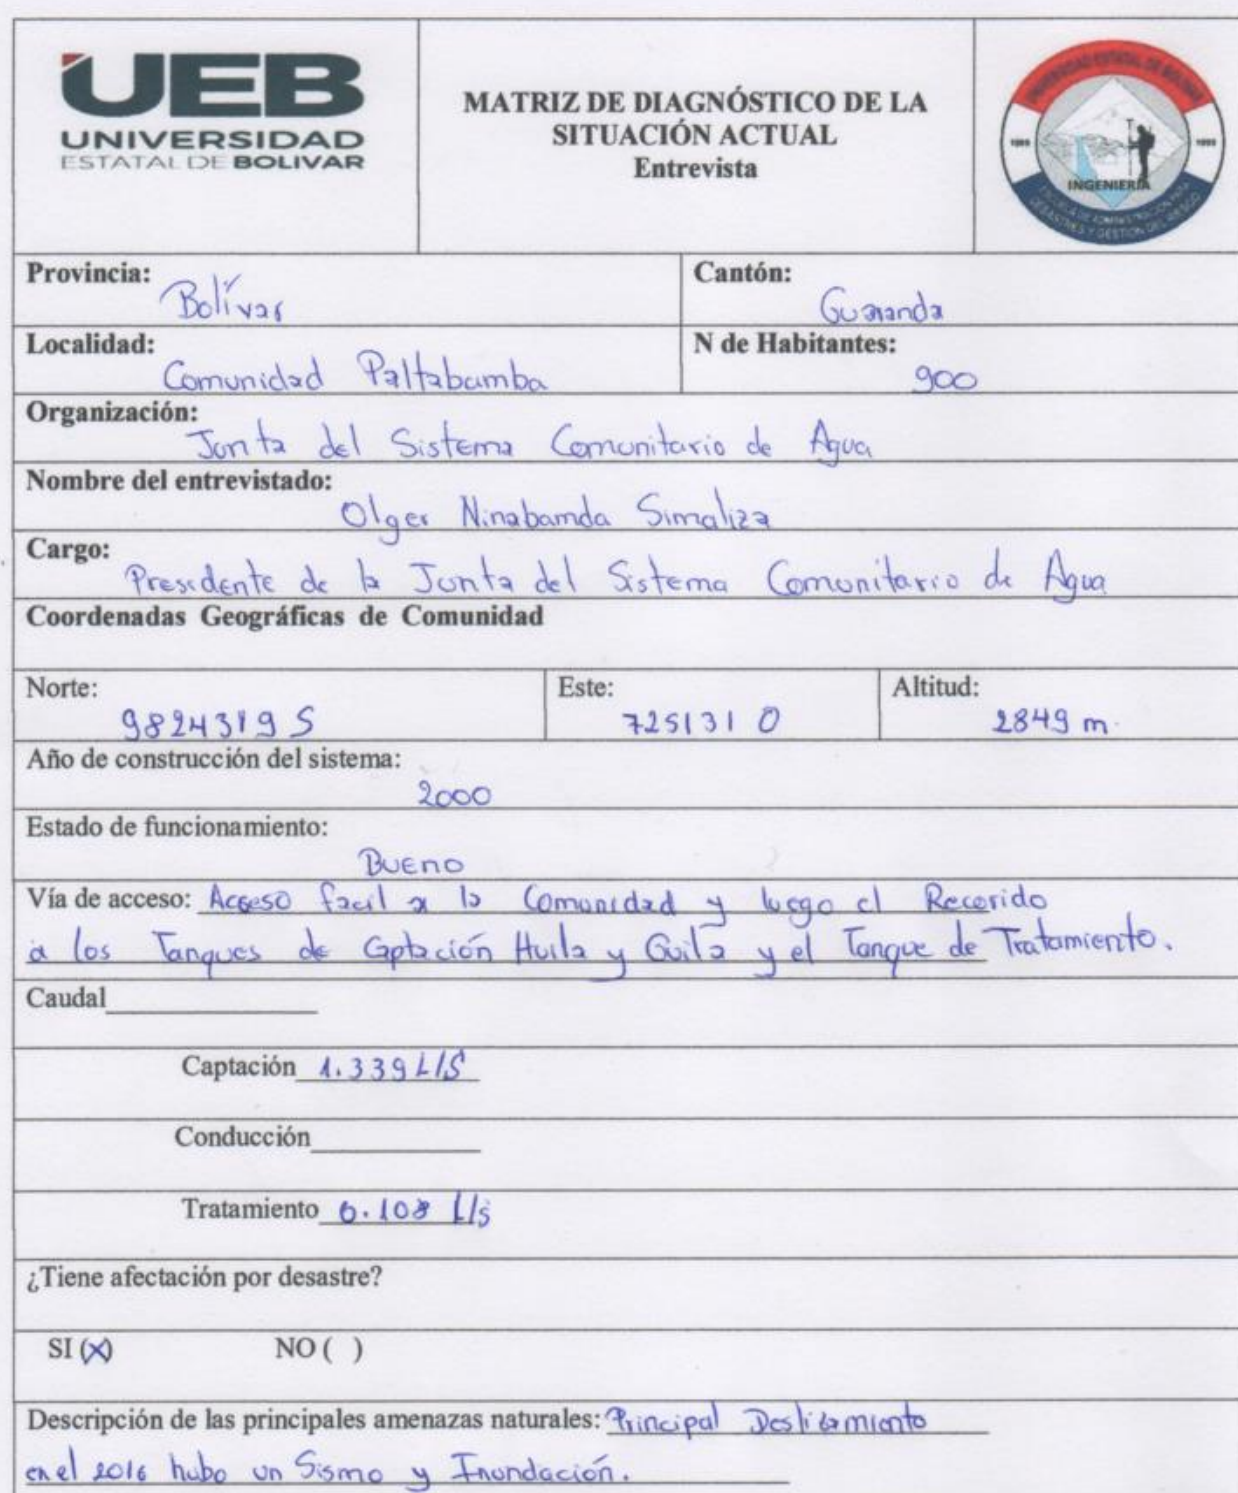 UEB
UNIVERSIDAD
ESTATAL DE BOLIVAR
MATRIZ DE DIAGNÓSTICO DE LA
SITUACIÓN ACTUAL
Entrevista
UNIVERSIDAD ESTATAL DE BOLIVAR
INGENIERIA
ESCUELA DE ADMINISTRACIÓN PARA
DESASTRES Y GESTIÓN DEL RIESGO
Provincia: Bolívar
Cantón: Guaranda
Localidad: Comunidad Paltabamba
N de Habitantes: 900
Organización: Junta del Sistema Comunitario de Agua
Nombre del entrevistado: Olger Ninabamda Simaliza
Cargo: Presidente de la Junta del Sistema Comunitario de Agua
Coordenadas Geográficas de Comunidad
Norte: 9824319 S
Este: 725131 O
Altitud: 2849 m.
Año de construcción del sistema: 2000
Estado de funcionamiento: Bueno
Vía de acceso: Acceso facil a la Comunidad y luego el Recorido
a los Tanques de Captación Huila y Guila y el Tanque de Tratamiento.
Caudal
Captación 1.339 L/S
Conducción
Tratamiento 0.108 L/s
¿Tiene afectación por desastre?
SI (x) NO ( )
Descripción de las principales amenazas naturales: Principal Deslizamiento
en el 2016 hubo un Sismo y Inundación.